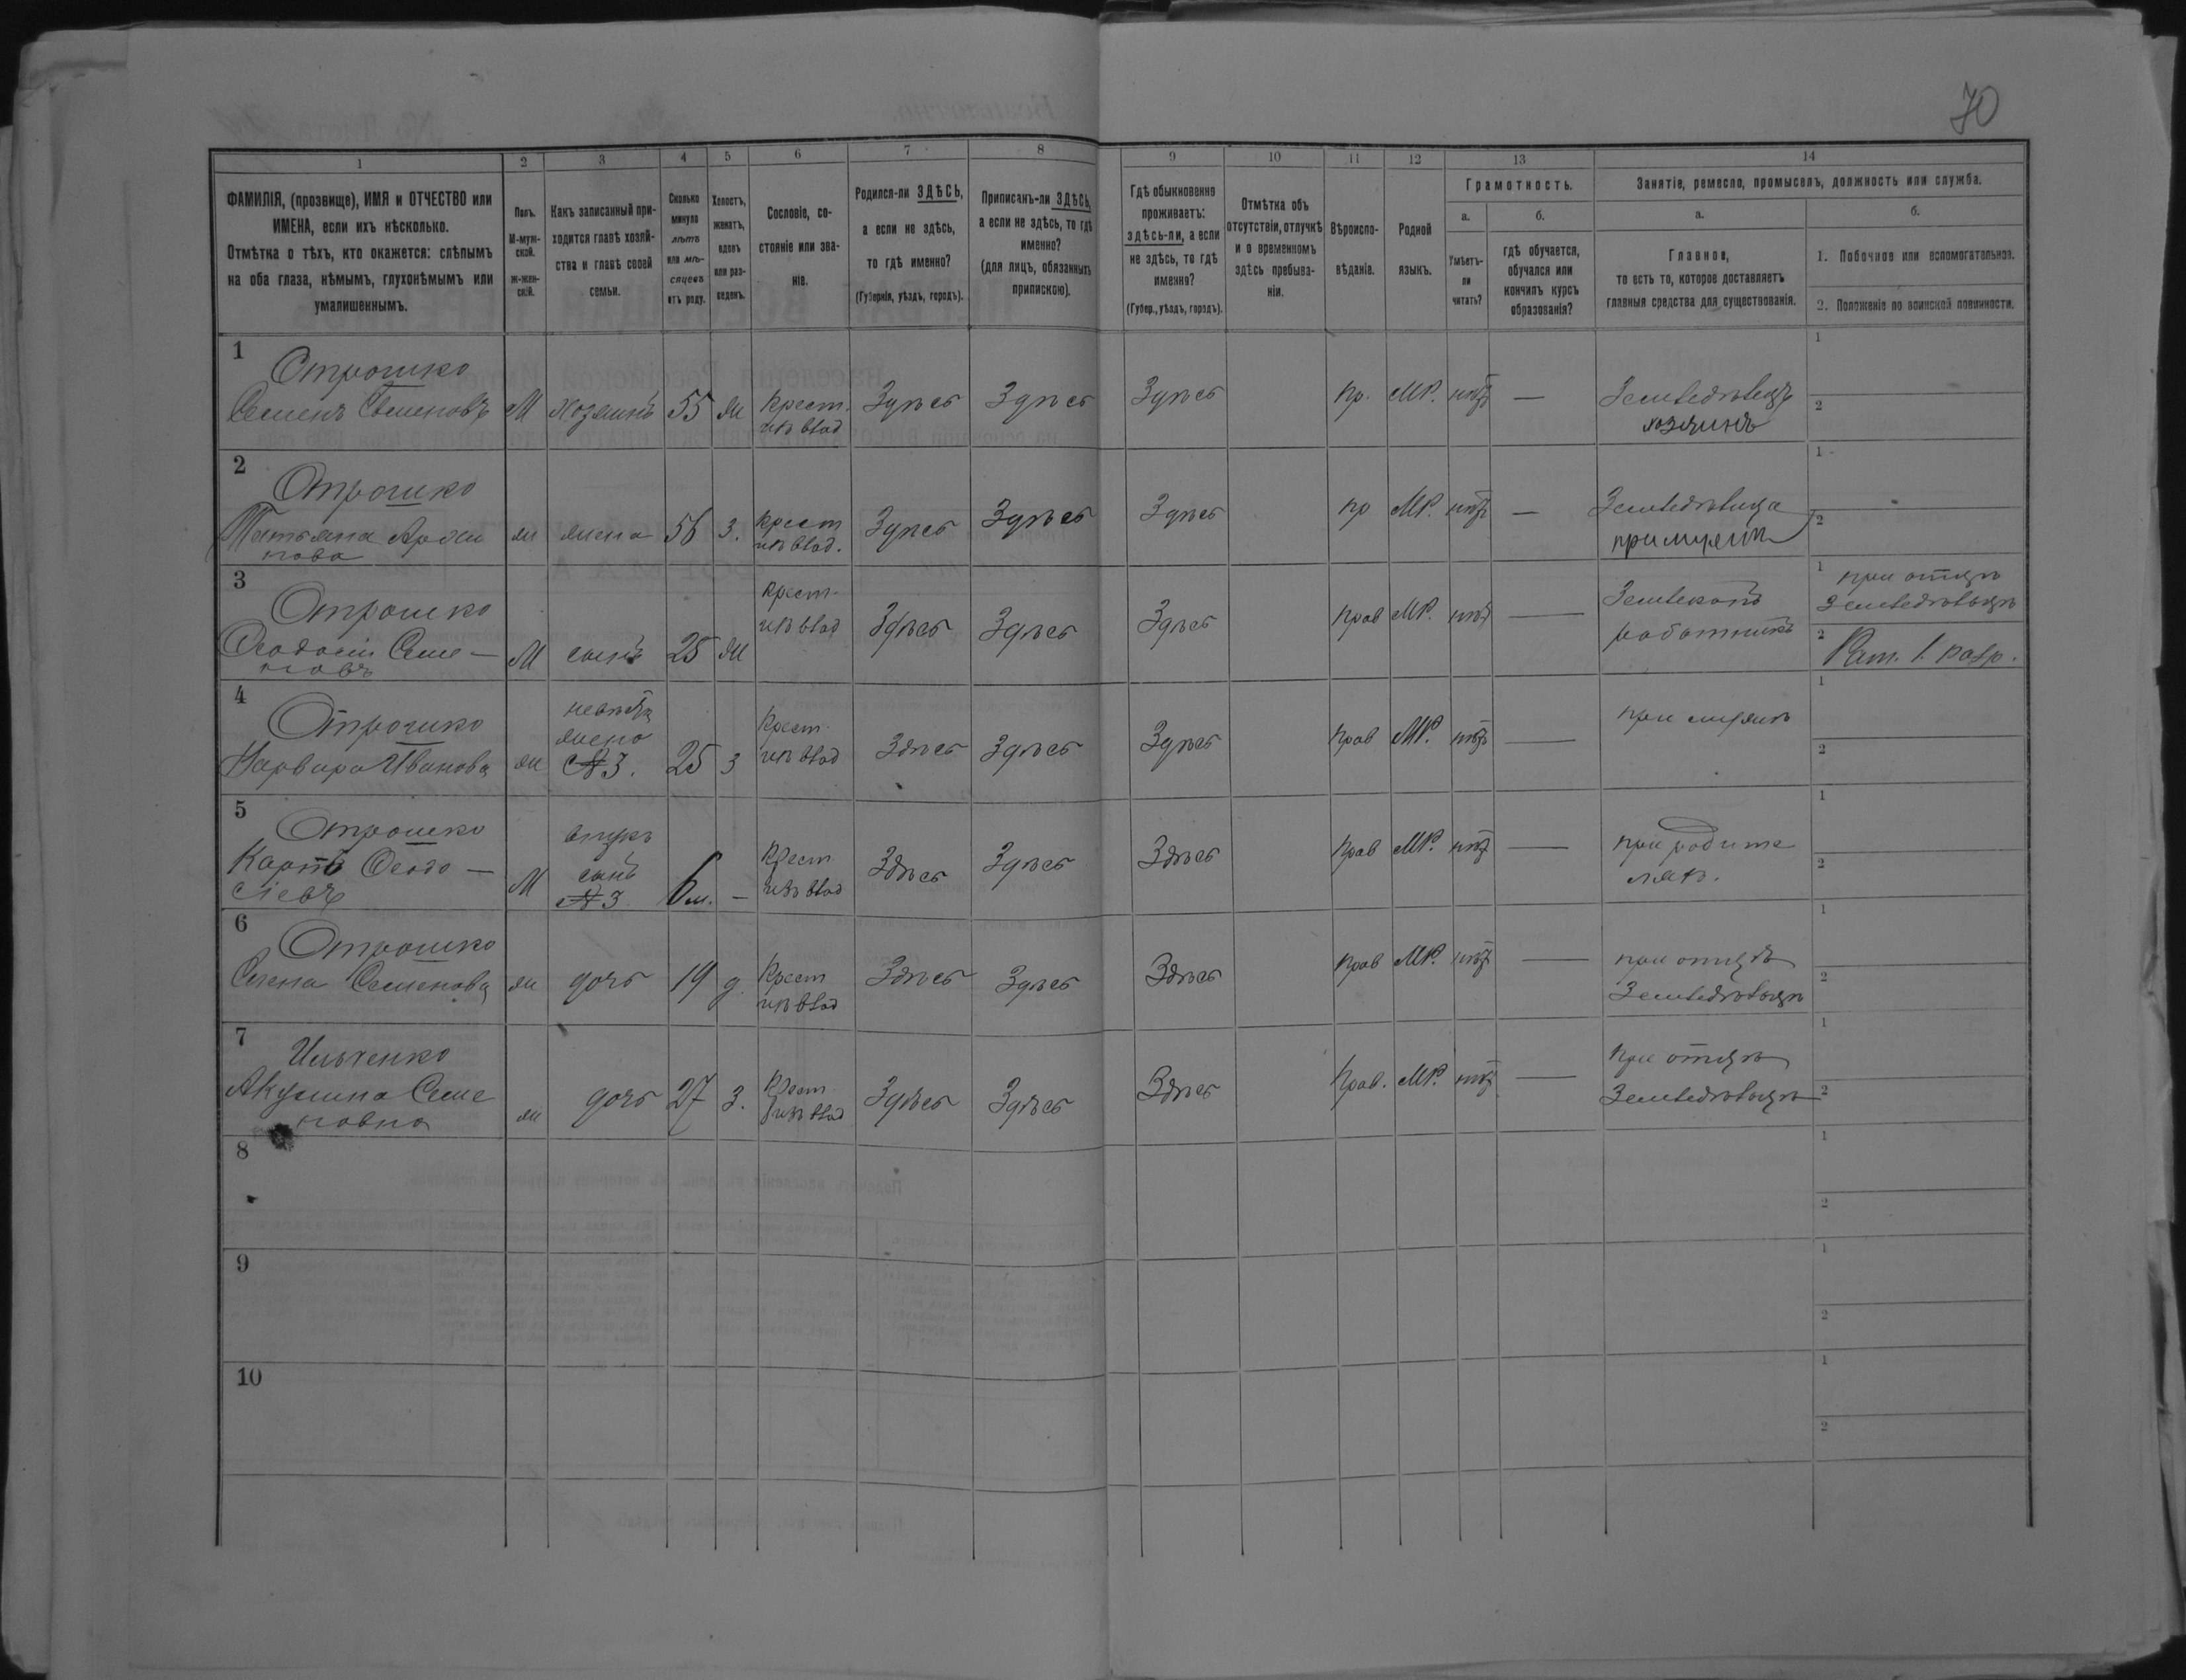 70
1 2 3 4 5 6 7 8 9 10 11 12 13 14
ФАМИЛІЯ, (прозвище), ИМЯ и ОТЧЕСТВО или
ИМЕНА, если ихъ нѣсколько.
Отмѣтка о тѣхъ, кто окажется: слѣпымъ
на оба глаза, нѣмымъ, глухонѣмымъ или
умалишеннымъ.
Полъ.
М-муж-
ской.
Ж-жен-
скій.
Какъ записанный при-
ходится главѣ хозяй-
ства и главѣ своей
семьи.
Сколько
минуло
лѣтъ
или мѣ-
сяцевъ
отъ роду.
Холостъ,
женатъ,
вдовъ
или раз-
веденъ.
Сословіе, со-
стояніе или зва-
ніе.
Родился-ли ЗДѢСЬ,
а если не здѣсь,
то гдѣ именно?
(Губернія, уѣздъ, городъ).
Приписанъ-ли ЗДѢСЬ,
а если не здѣсь, то гдѣ
именно?
(для лицъ, обязанныхъ
припискою).
Гдѣ обыкновенно
проживаетъ:
здѣсь-ли, а если
не здѣсь, то гдѣ
именно?
(Губер., уѣздъ, городъ).
Отмѣтка объ
отсутствіи, отлучкѣ
и о временномъ
здѣсь пребыва-
ніи.
Вѣроиспо-
вѣданіе.
Родной
языкъ.
Грамотность.
а.
Умѣетъ-
ли
читать?
б.
гдѣ обучается,
обучался или
кончилъ курсъ
образованія?
Занятіе, ремесло, промыселъ, должность или служба.
а.
Главное,
то есть то, которое доставляетъ
главныя средства для существованія.
б.
1. Побочное или вспомогательное.
2. Положеніе по воинской повинности.
1
Отрошко
Семенъ Семеновъ М хозяинъ 55 ж Крест. Здѣсь Здѣсь Здѣсь пр. МР. нѣтъ — Земледѣлецъ
хозяинъ
1
2
2
Отрошко
Татьяна Архи
пова ж жена 56 з. крест Здѣсь Здѣсь Здѣсь пр МР. нѣтъ — Земледѣлица
при мужѣ
1
2
3
Отрошко
Ѳеодосій Семе-
новъ М сынъ 25 ж крест. Здѣсь Здѣсь Здѣсь прав МР. нѣтъ —
работникъ
1 при отцѣ
земледѣльцѣ
2 Рат. 1. разр.
4
Отрошко
Варвара Иванова ж невѣстка
жена
№ 3. 25 з Крест. Здѣсь Здѣсь Здѣсь прав МР. нѣтъ — при мужѣ
1
2
5
Отрошко
Карпъ Ѳеодо-
сіевъ М внукъ
сынъ
№ 3 6 м. — Крест Здѣсь Здѣсь Здѣсь прав МР. нѣтъ — при родите
ляхъ.
1
2
6
Отрошко
Елена Семенова ж дочь 19 д. Крест Здѣсь Здѣсь Здѣсь прав МР. нѣтъ — при отцѣ
Земледѣльцѣ
1
2
7
Ильченко
Акулина Семе
новна ж дочь 27 з. Крест Здѣсь Здѣсь Здѣсь прав. МР. нѣтъ — При отцѣ
Земледѣльцѣ
1
2
8
1
2
9
1
2
10
1
2